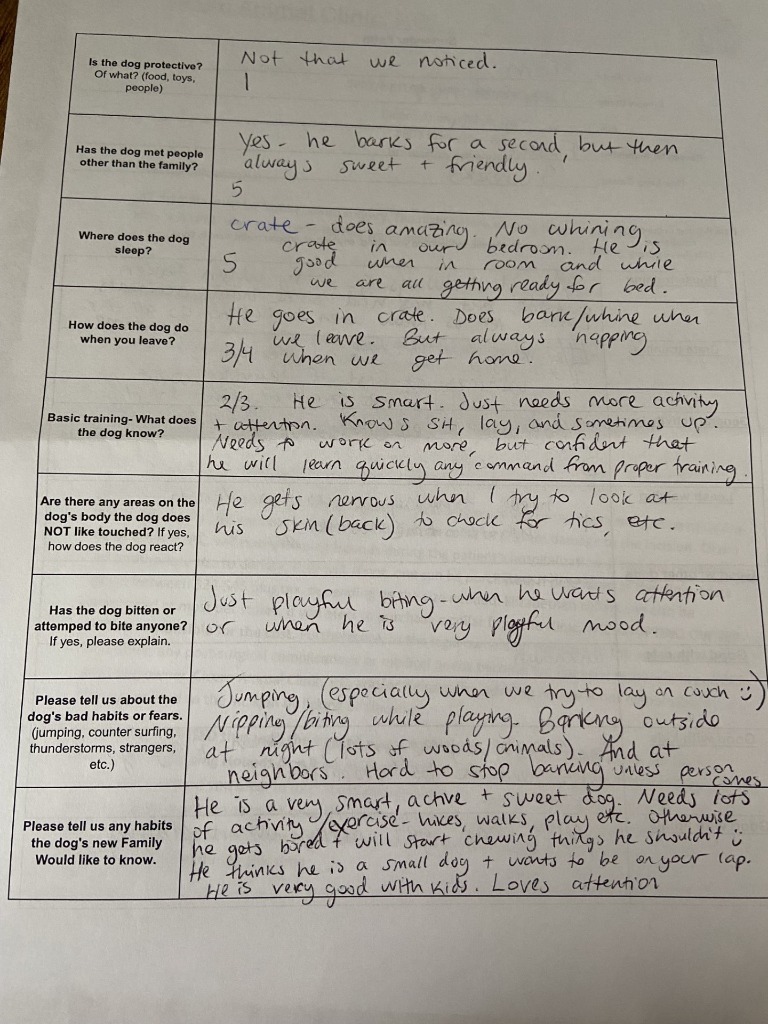 Is the dog protective?
Of what? (food, toys,
people)
Not that we noticed.
1
Has the dog met people
other than the family?
Yes - he barks for a second, but then
always sweet + friendly.
5
Where does the dog
sleep?
crate - does amazing. No whining
crate in our bedroom. He is
5 good when in room and while
we are all getting ready for bed.
How does the dog do
when you leave?
He goes in crate. Does bark/whine when
we leave. But always napping
3/4 when we get home.
Basic training- What does
the dog know?
2/3. He is smart. Just needs more activity
+ attention. Knows sit, lay, and sometimes up.
Needs to work on more, but confident that
he will learn quickly any command from proper training.
Are there any areas on the
dog's body the dog does
NOT like touched? If yes,
how does the dog react?
He gets nervous when I try to look at
his skin (back) to check for tics, etc.
Has the dog bitten or
attemped to bite anyone?
If yes, please explain.
Just playful biting - when he wants attention
or when he is very playful mood.
Please tell us about the
dog's bad habits or fears.
(jumping, counter surfing,
thunderstorms, strangers,
etc.)
Jumping, (especially when we try to lay on couch :)
Nipping/biting while playing. Barking outside
at night (lots of woods/animals). And at
neighbors. Hard to stop barking unless person
comes
Please tell us any habits
the dog's new Family
Would like to know.
He is a very smart, active + sweet dog. Needs lots
of activity/exercise - hikes, walks, play etc. Otherwise
he gets bored + will start chewing things he shouldn't :)
He thinks he is a small dog + wants to be on your lap.
He is very good with kids. Loves attention